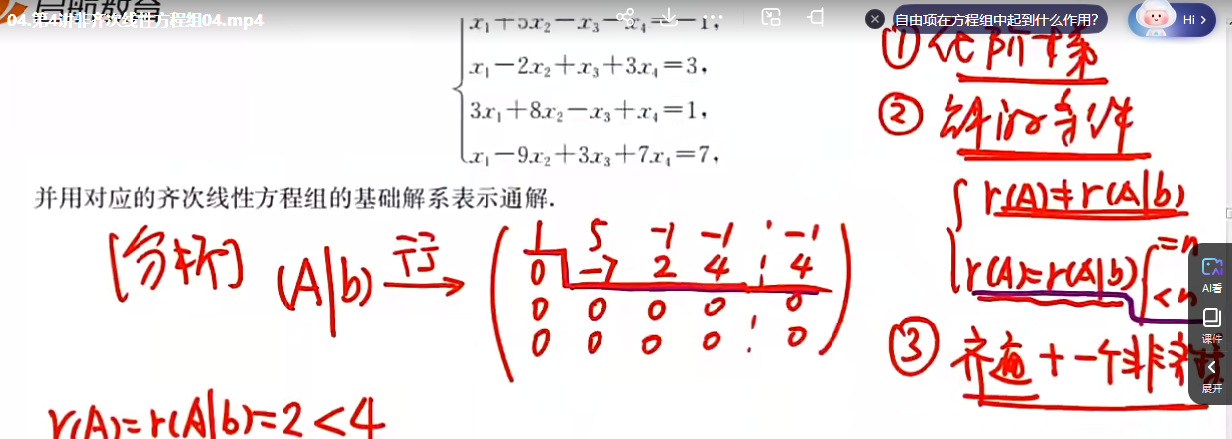 04.第4讲非齐次线性方程组04.mp4
自由项在方程组中起到什么作用？
Hi >
x₁+5x₂−x₃−x₄=−1,
x₁−2x₂+x₃+3x₄=3,
3x₁+8x₂−x₃+x₄=1,
x₁−9x₂+3x₃+7x₄=7,
并用对应的齐次线性方程组的基础解系表示通解.
[分析] (A|b) 行→
1 5 -1 -1 ¦ -1
0 -7 2 4 ¦ 4
0 0 0 0 0
0 0 0 0 ¦ 0
r(A)=r(A|b)=2<4
① 化阶梯
② 解的条件
r(A)≠r(A|b)
r(A)=r(A|b) { =n
<n
③ 齐通+一个非齐特
AI看
课件
展开